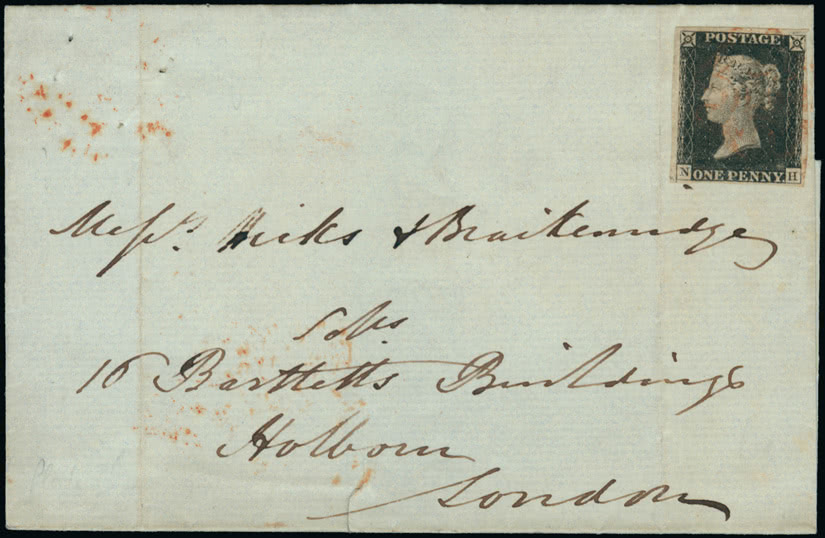 POSTAGE
ONE PENNY
N H
Messrs. Hicks & Braikenridge
Solrs
16 Bartletts Buildings
Holborn
London